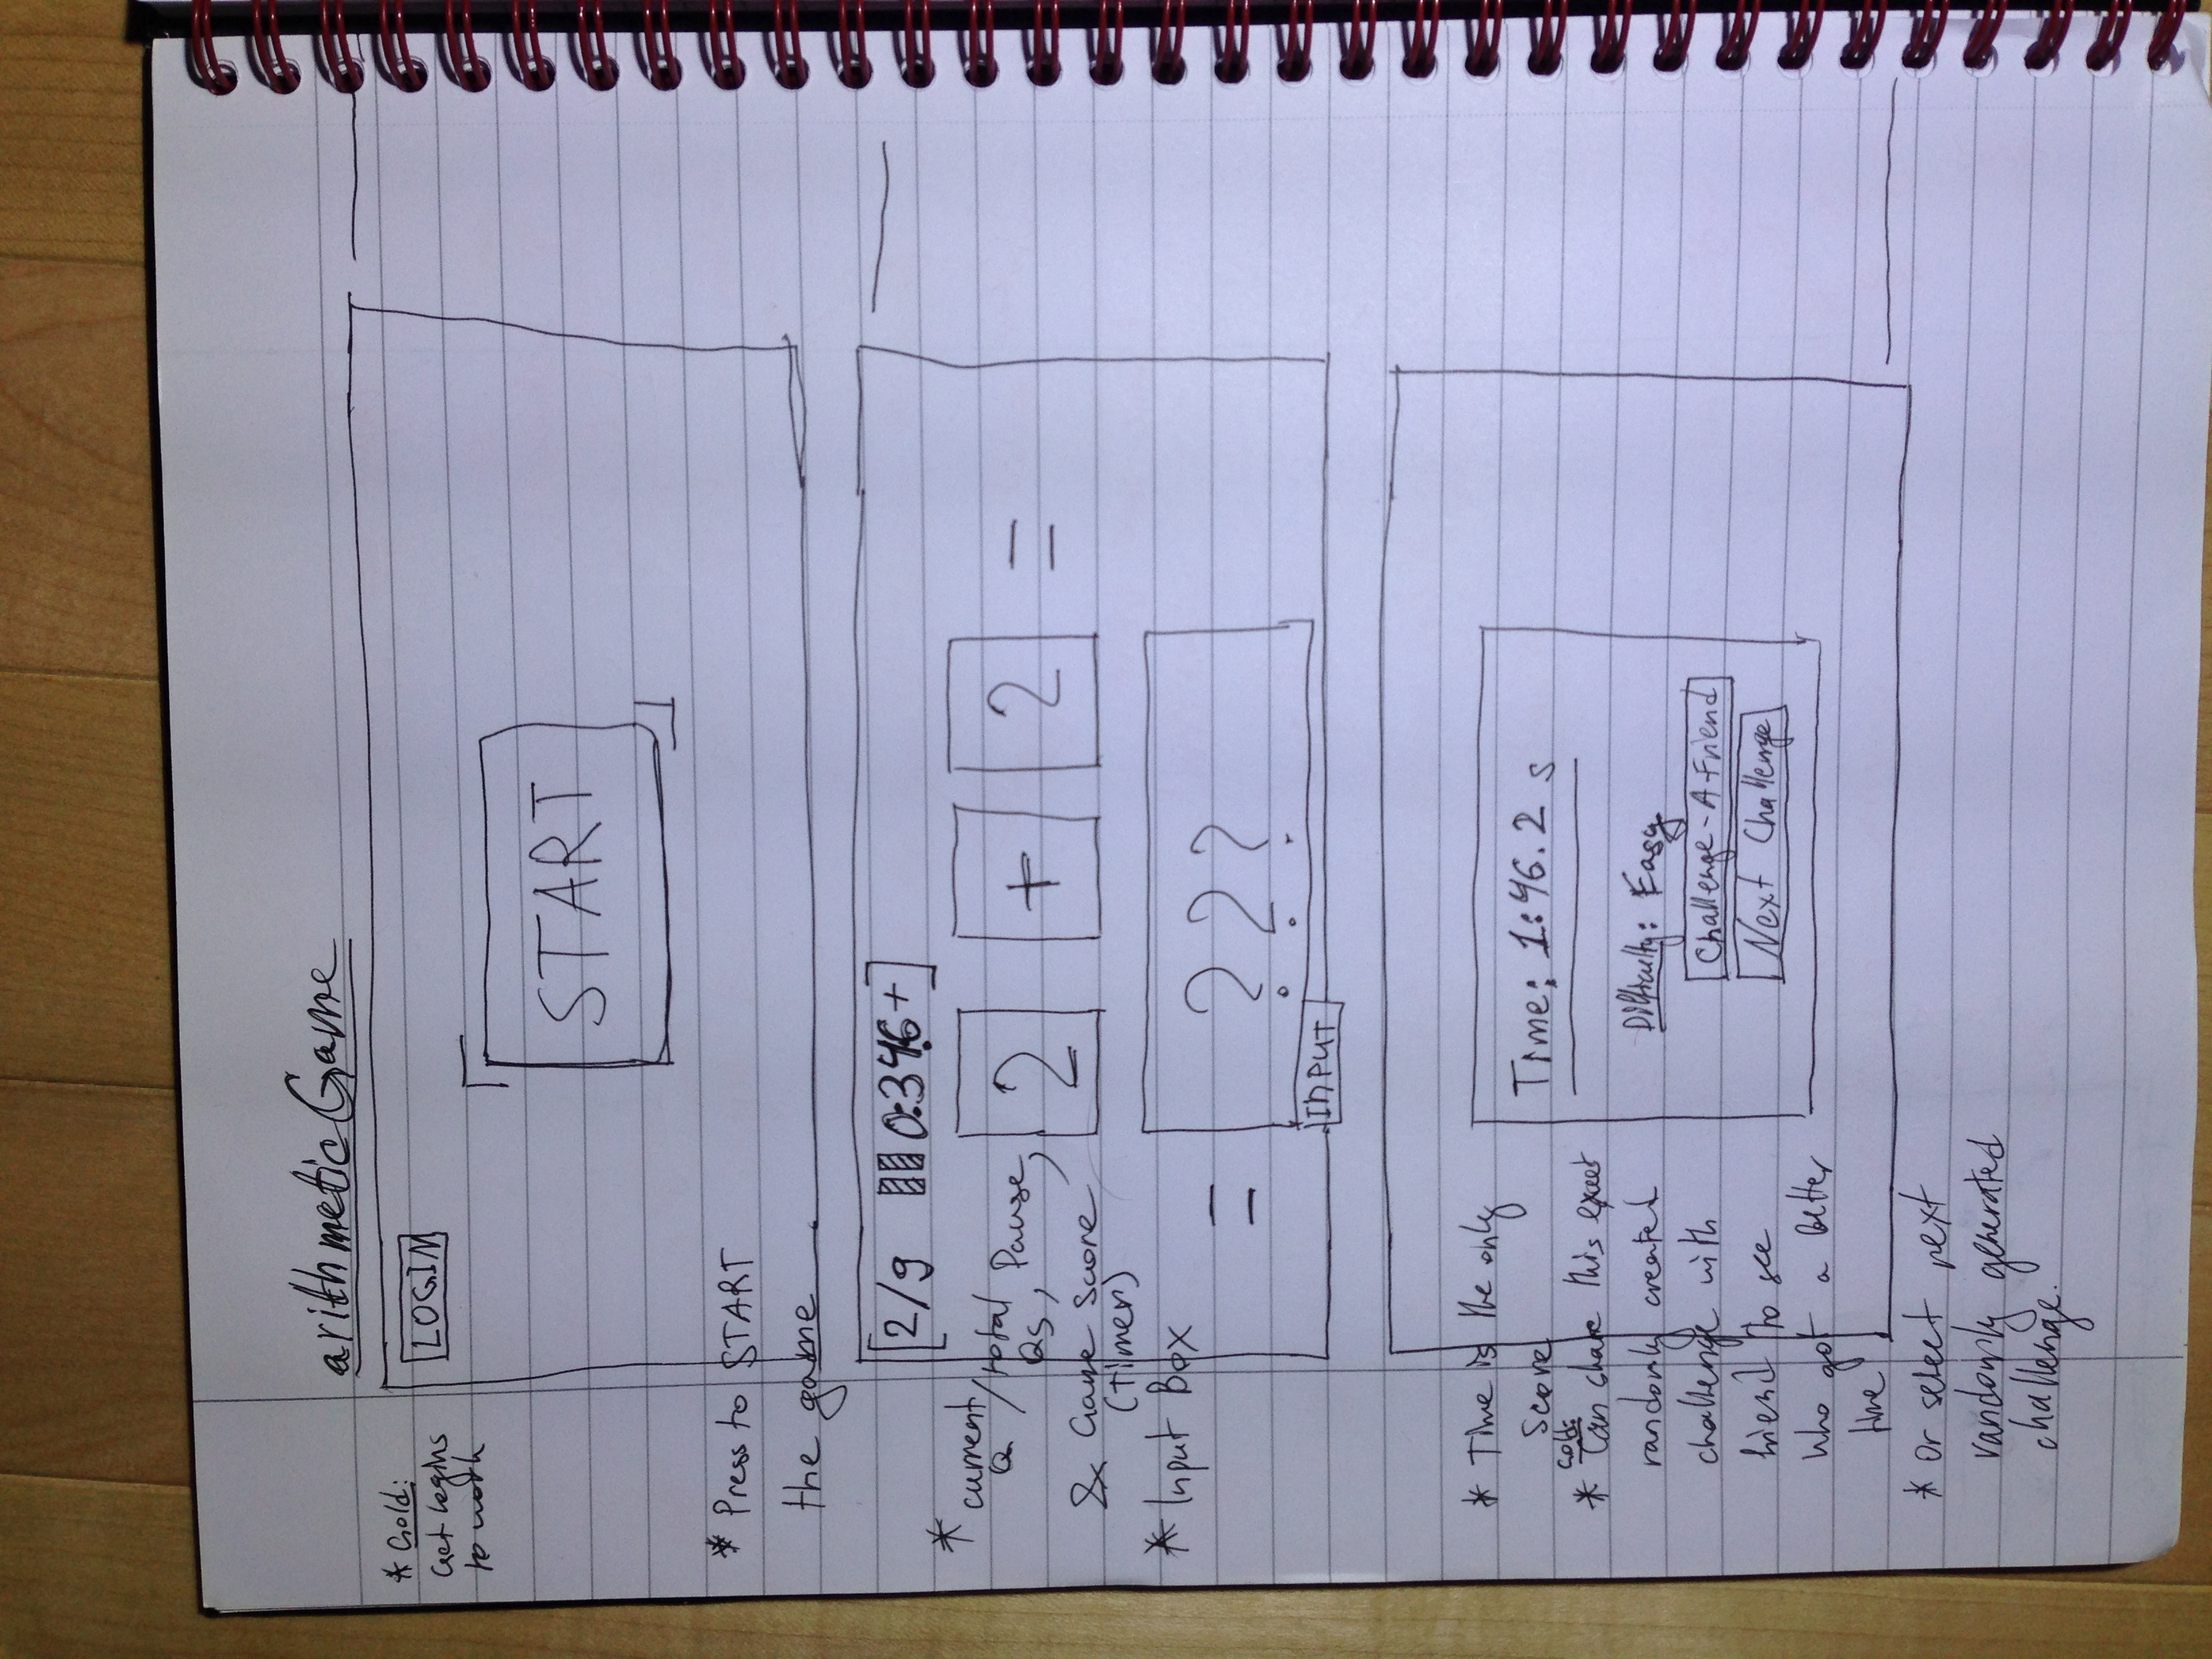 arithmetic Game
* Gold:
Get logins
to work
LOGIN
START
* Press to START
the game
[2/9 0:34.6+]
* current
Q /total
Qs, Pause,
& Game Score
(Timer)
2 + 2 =
* Input Box
= ???
INPUT
* Time is the only
Score
Gold:
* Can share this exact
randomly created
challenge with
friend to see
who got a better
time
* Or select next
randomly generated
challenge.
Time: 1:46.2 s
Difficulty: Easy
Challenge-A-Friend
Next Challenge